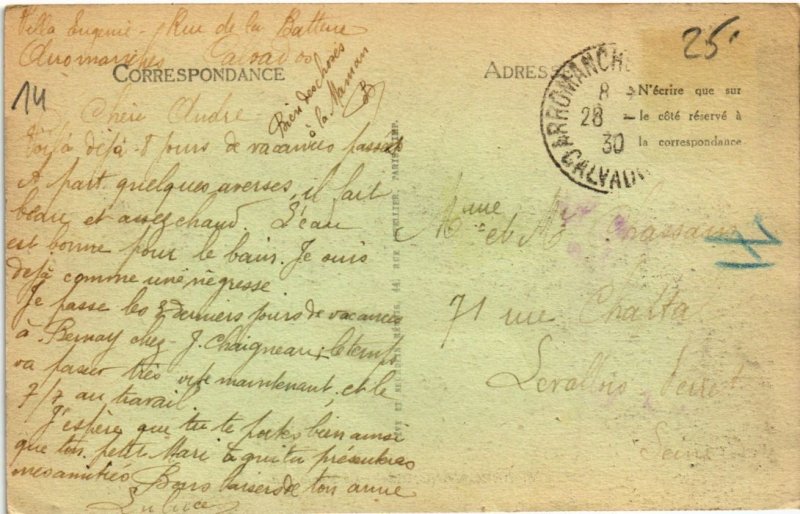 Villa Eugenie - Rue de la Batterie
Arromanches Calvados
CORRESPONDANCE
14
Bien des choses
à la Maman
Chère Andrée
Voilà déjà 8 jours de vacances passés
A part quelques averses, il fait
beau et assez chaud. L'eau
est bonne pour le bain. Je suis
déjà comme une négresse
Je passe les 2 derniers jours de vacances
à Bernay chez J. Chaigneau, le temps
va passer très vite maintenant, et le
7/7 au travail.
J'espère que tu te portes bien ainsi
que ton petit Mari à qui tu présenteras
mes amitiés Bons baisers de ton amie
ADRESSE
ARROMANCHES
8
28
30
CALVADOS
25
N'écrire que sur
le côté réservé à
la correspondance
Mme et Mr Chassain
71 rue
Levallois Perret
Seine